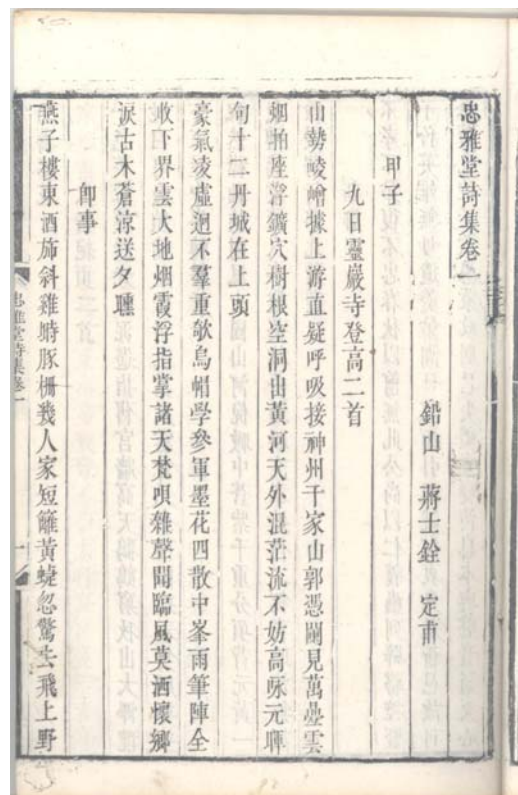 忠雅堂詩集卷一
鉛山 蔣士銓 定甫
甲子
九日靈巖寺登高二首
山勢崚嶒據上游直疑呼吸接神州千家山郭憑闌見萬疊雲
烟拍座浮鑛穴樹根空洞出黃河天外混茫流不妨高咏元暉
句十二丹城在上頭
豪氣凌虛迥不羣重欹烏帽學參軍墨花四散中峯雨筆陣全
收下界雲大地烟霞浮指掌諸天梵唄雜聲聞臨風莫洒懷鄉
淚古木蒼涼送夕曛
卽事
燕子樓東酒斾斜雞塒豚柵幾人家短籬黃蜨忽驚去飛上野
忠雅堂詩集卷一
一